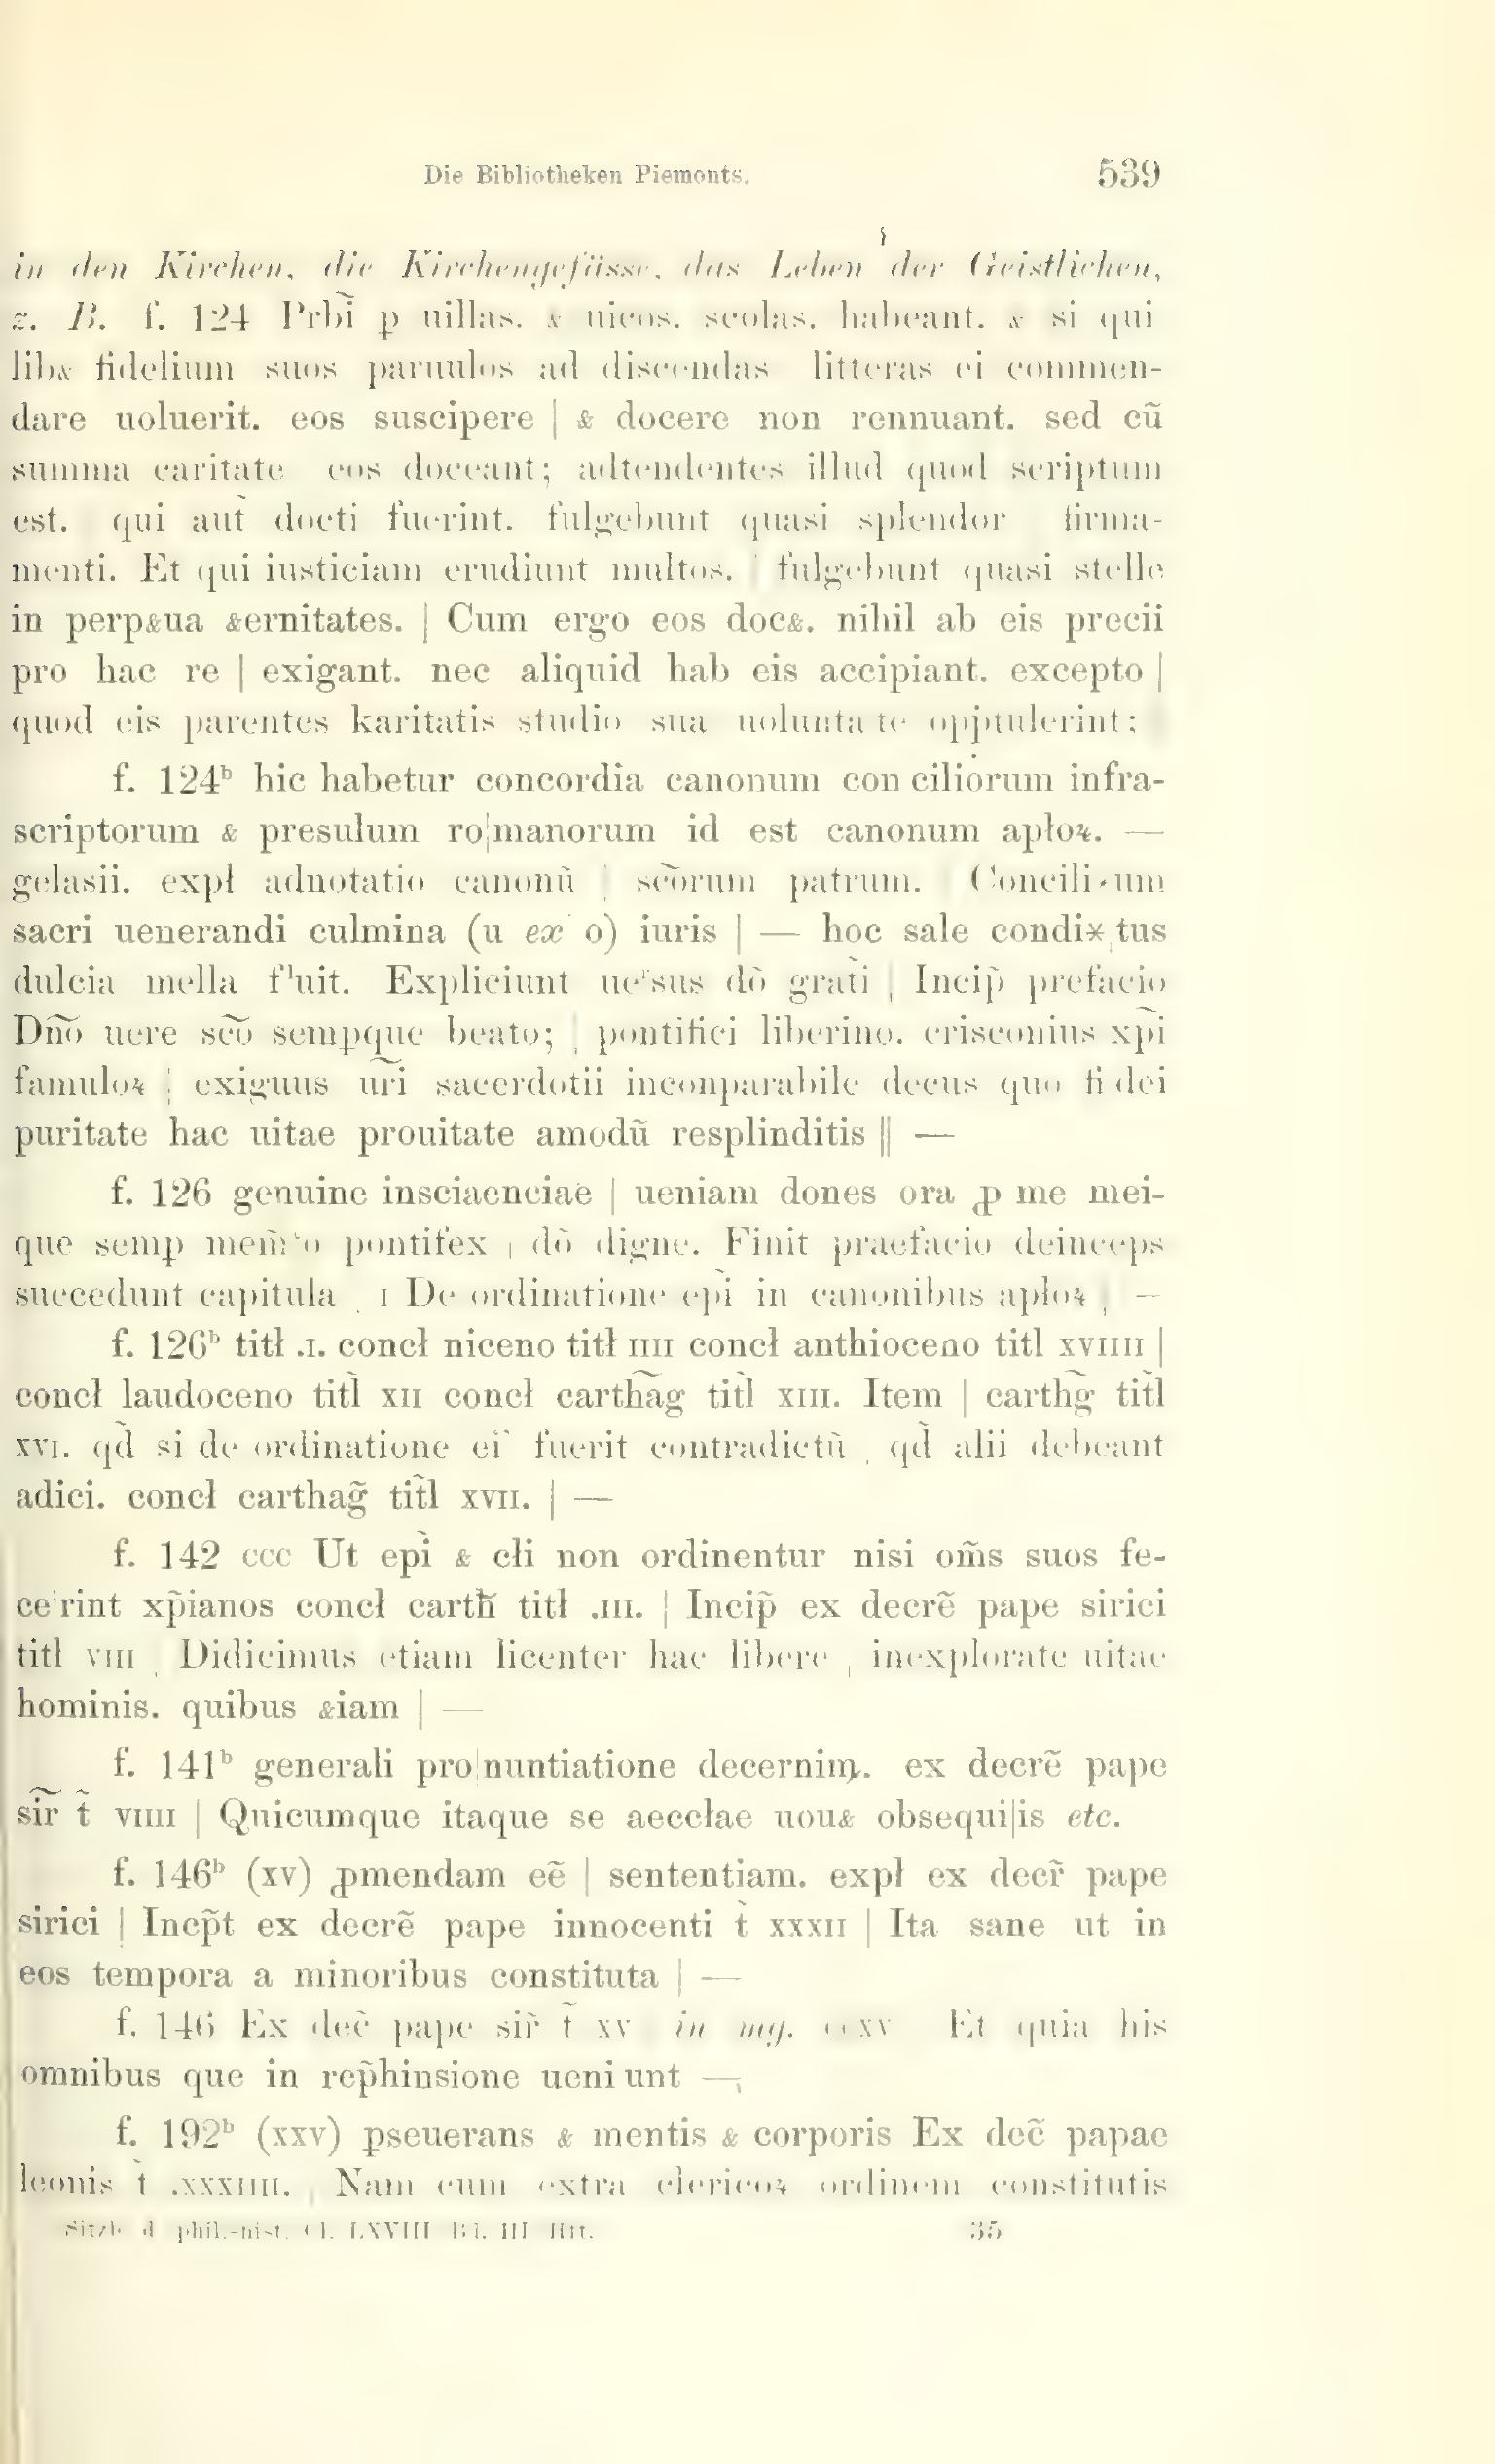 Die Bibliotheken Piemonts. 539
in den Kirchen, die Kirchengefässe, das Leben der Geistlichen,
z. B. f. 124 Prbĩ ꝑ uillas. & uicos. scolas. habeant. & si qui
lib& fidelium suos paruulos ad discendas litteras ei commen-
dare uoluerit. eos suscipere | & docere non rennuant. sed cũ
summa caritate eos doceant; adtendentes illud quod scriptum
est. qui aut̃ docti fuerint. fulgebunt quasi splendor firma-
menti. Et qui iusticiam erudiunt multos. | fulgebunt quasi stelle
in perp&ua &ernitates. | Cum ergo eos doc&. nihil ab eis precii
pro hac re | exigant. nec aliquid hab eis accipiant. excepto |
quod eis parentes karitatis studio sua uolunta te opptulerint;
f. 124ᵇ hic habetur concordia canonum con ciliorum infra-
scriptorum & presulum ro|manorum id est canonum apłoꝝ. —
gelasii. expł adnotatio canonũ | sc̃orum patrum. Concili um
sacri uenerandi culmina (u ex o) iuris | — hoc sale condi* tus
dulcia mella fˡuit. Expliciunt ueʳsus dõ grat̃i | Incip̃ prefacio
Dñõ uere sc̃õ sempque beato; | pontifici liberino. crisconius xp̃i
famuloꝝ | exiguus ur̃i sacerdotii inconparabile decus quo fi dei
puritate hac uitae prouitate amodũ resplinditis || —
f. 126 genuine insciaenciae | ueniam dones ora ꝓ me mei-
que semꝑ pontifex | dõ digne. Finit praefacio deinceps
succedunt capitula | ɪ De ordinatione epĩ in canonibus apłoꝝ | —
f. 126ᵇ titł .ɪ. concł niceno titł ɪɪɪɪ concł anthioceno titl xvɪɪɪɪ |
concł laudoceno titl̃ xɪɪ concł carthãg titl̃ xɪɪɪ. Item | carthg̃ titl̃
xvɪ. qd̃ si de ordinatione ei fuerit contradictũ | qd̃ alii debeant
adici. concł carthag̃ titl̃ xvɪɪ. | —
f. 142 ccc Ut epĩ & cłi non ordinentur nisi om̃s suos fe-
ceˈrint xp̃ianos concł carth̃ titł .ɪɪɪ. | Incip̃ ex decrẽ pape sirici
titl vɪɪɪ | Didicimus etiam licenter hac libere | inexplorate uitae
hominis. quibus &iam | —
f. 141ᵇ generali pro|nuntiatione decernim. ex decrẽ pape
sir̃ t̃ vɪɪɪɪ | Quicumque itaque se aeccłae uou& obsequi|is etc.
f. 146ᵇ (xv) ꝓmendam eẽ | sententiam. expł ex decr̃ pape
sirici | Incp̃t ex decrẽ pape innocenti t̃ xxxɪɪ | Ita sane ut in
eos tempora a minoribus constituta | —
f. 146 Ex dec̃ pape sir̃ t̃ xv in mg. ccxv Et quia his
omnibus que in rep̃hinsione ueni unt —
f. 192ᵇ (xxv) ꝑseuerans & mentis & corporis Ex dec̃ papae
leonis t̃ .xxxɪɪɪɪ. | Nam cum extra clericoꝝ ordinem constitutis
Sitzb. d. phil.-hist. Cl. LXXVIII. Bd. III. Hft. 35